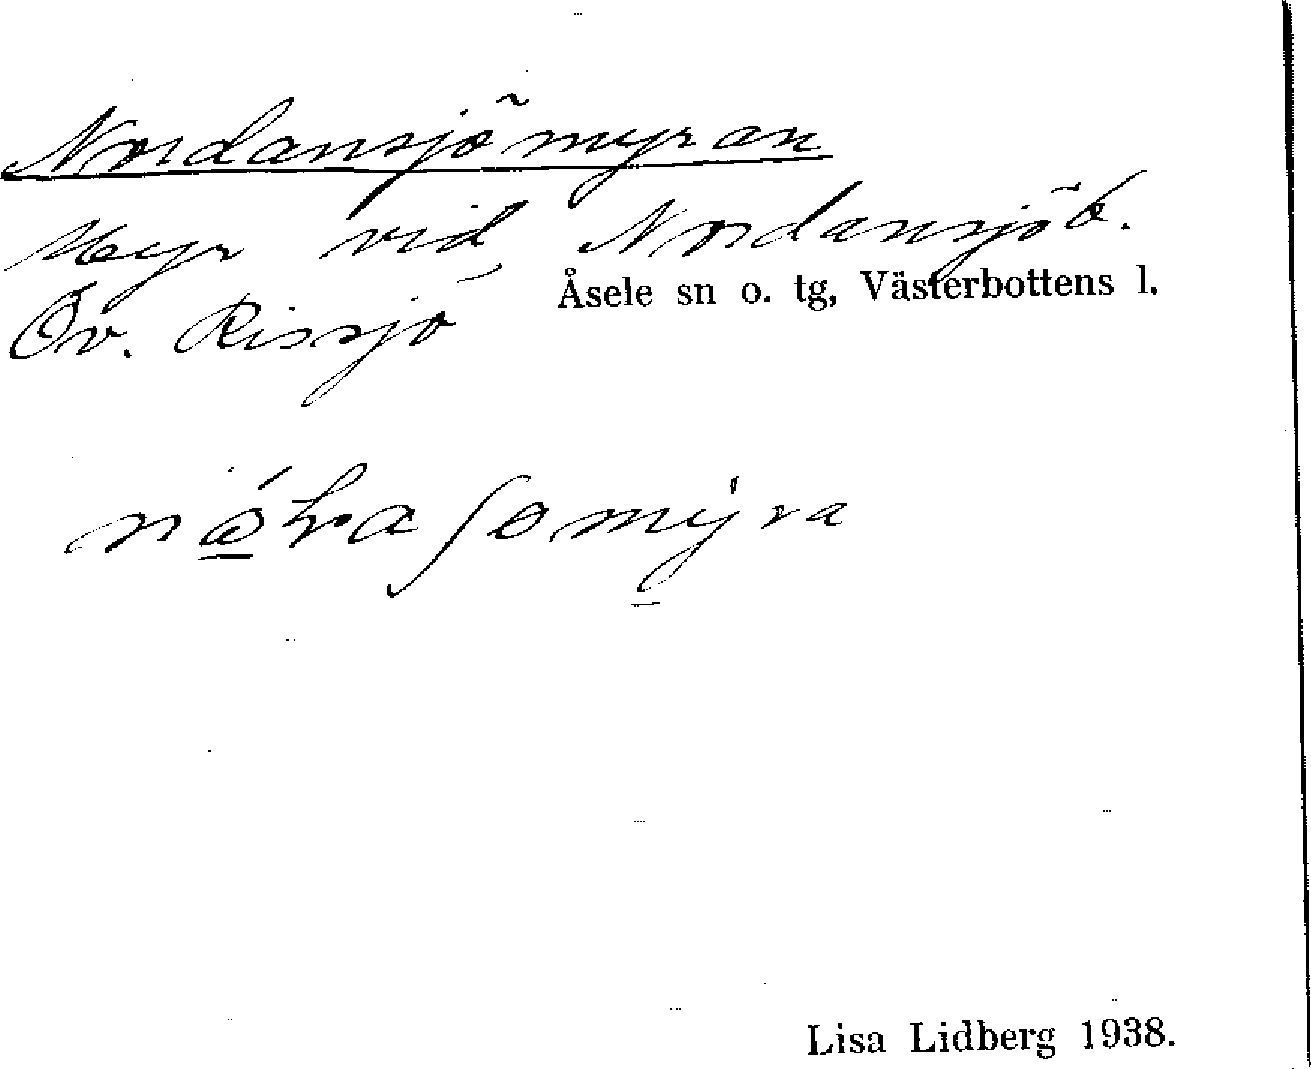 Nordansjömyran
Myr vid Nordansjöb.
Öv. Rissjö
Åsele sn o. tg, Västerbottens l.
Lisa Lidberg 1938.